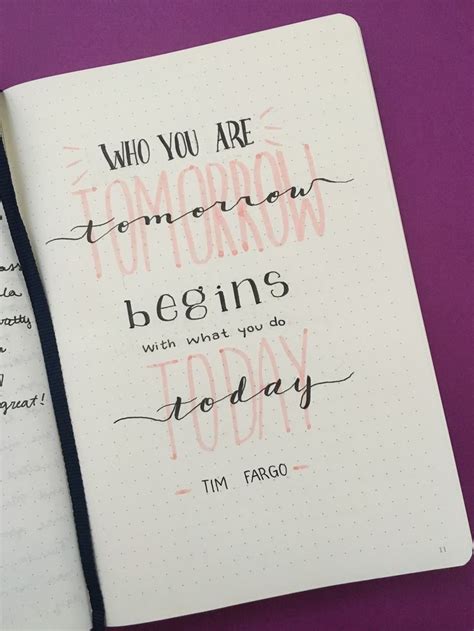 WHO YOU ARE
TOMORROW
tomorrow
begins
with what you do
TODAY
today
- TIM FARGO -
great!
11